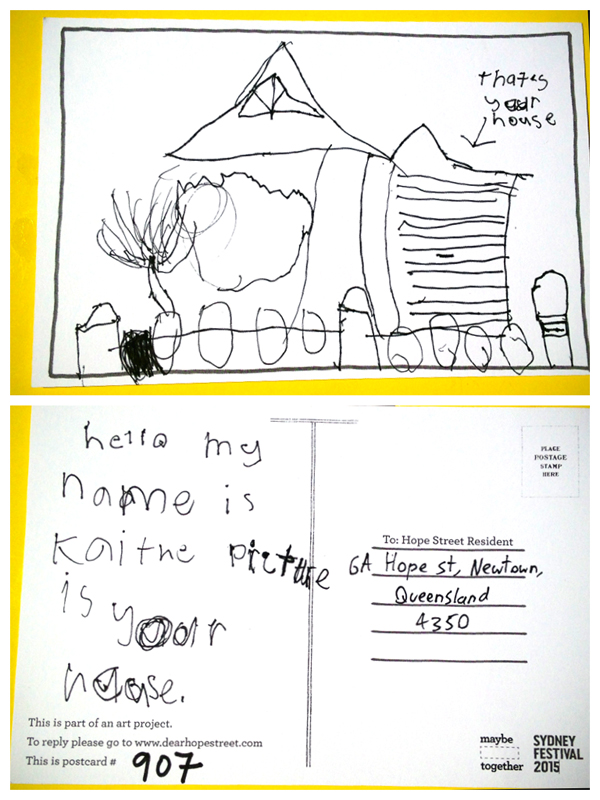 thates
your
house
hello my
name is
Kai the picture
is your
house.
This is part of an art project.
To reply please go to www.dearhopestreet.com
This is postcard # 907
PLACE
POSTAGE
STAMP
HERE
To: Hope Street Resident
6A Hope st, Newtown,
Queensland
4350
maybe
together
SYDNEY
FESTIVAL
2015